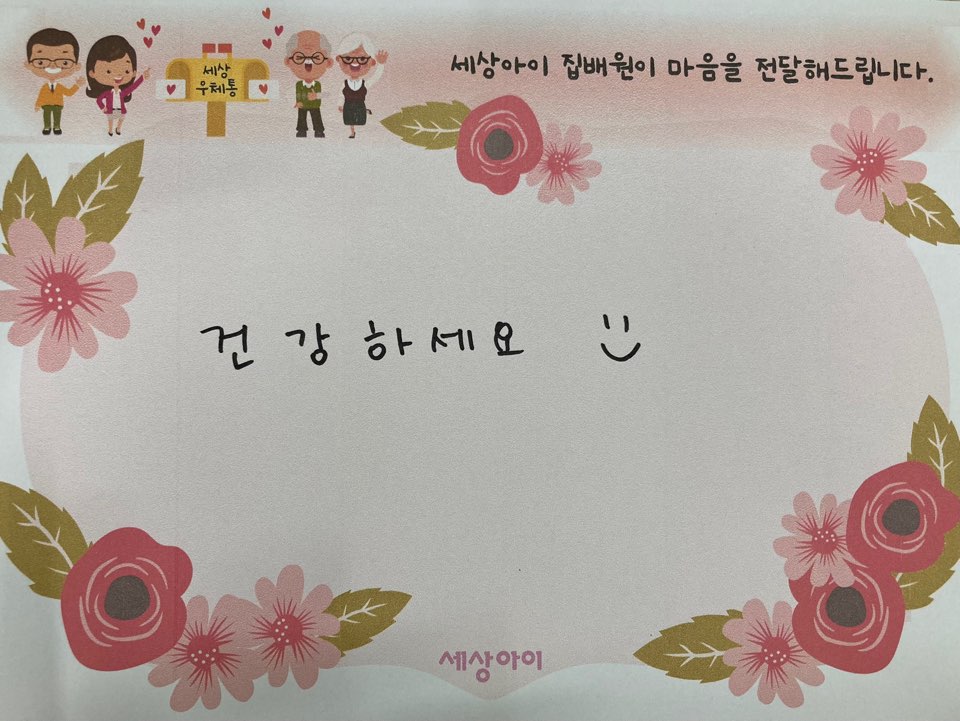 세상아이 집배원이 마음을 전달해드립니다.
세상
우체통
건강하세요
세상아이